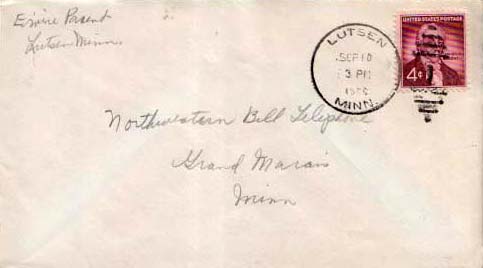 Lutsen Minn.
LUTSEN
SEP 10
3 PM
MINN.
UNITED STATES POSTAGE
4¢
Northwestern Bell Telephone
Grand Marais
Minn